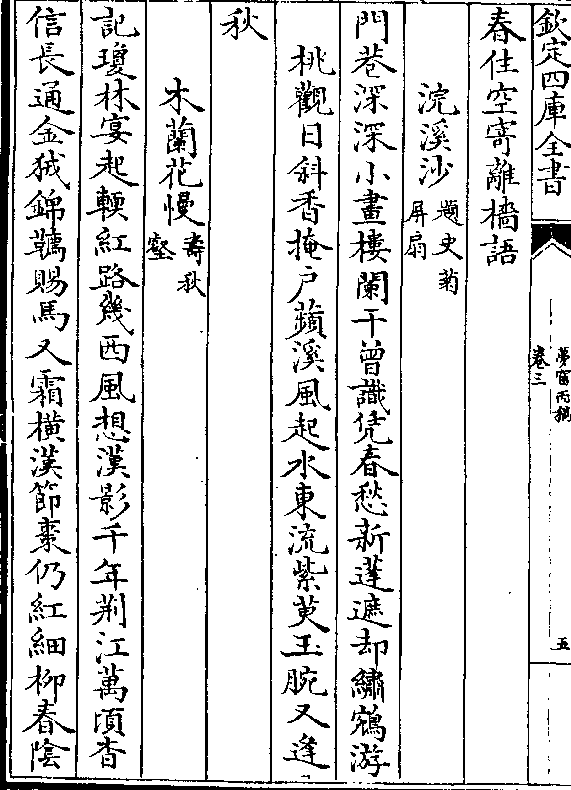 欽定四庫全書
夢窗丙稿
卷三
五
春住空寄離檣語
浣溪沙題史菊
屏扇
門巷深深小畫樓闌干曽識凭春愁新蓬遮却繡鴛游
桃觀日斜香掩戸蘋溪風起水東流紫萸玉腕又逢
秋
木蘭花慢夀秋
壑
記瓊林宴起輭紅路幾西風想漢影千年荆江萬頃杳
信長通金狨錦韉賜馬又霜橫漢節棗仍紅細柳春隂